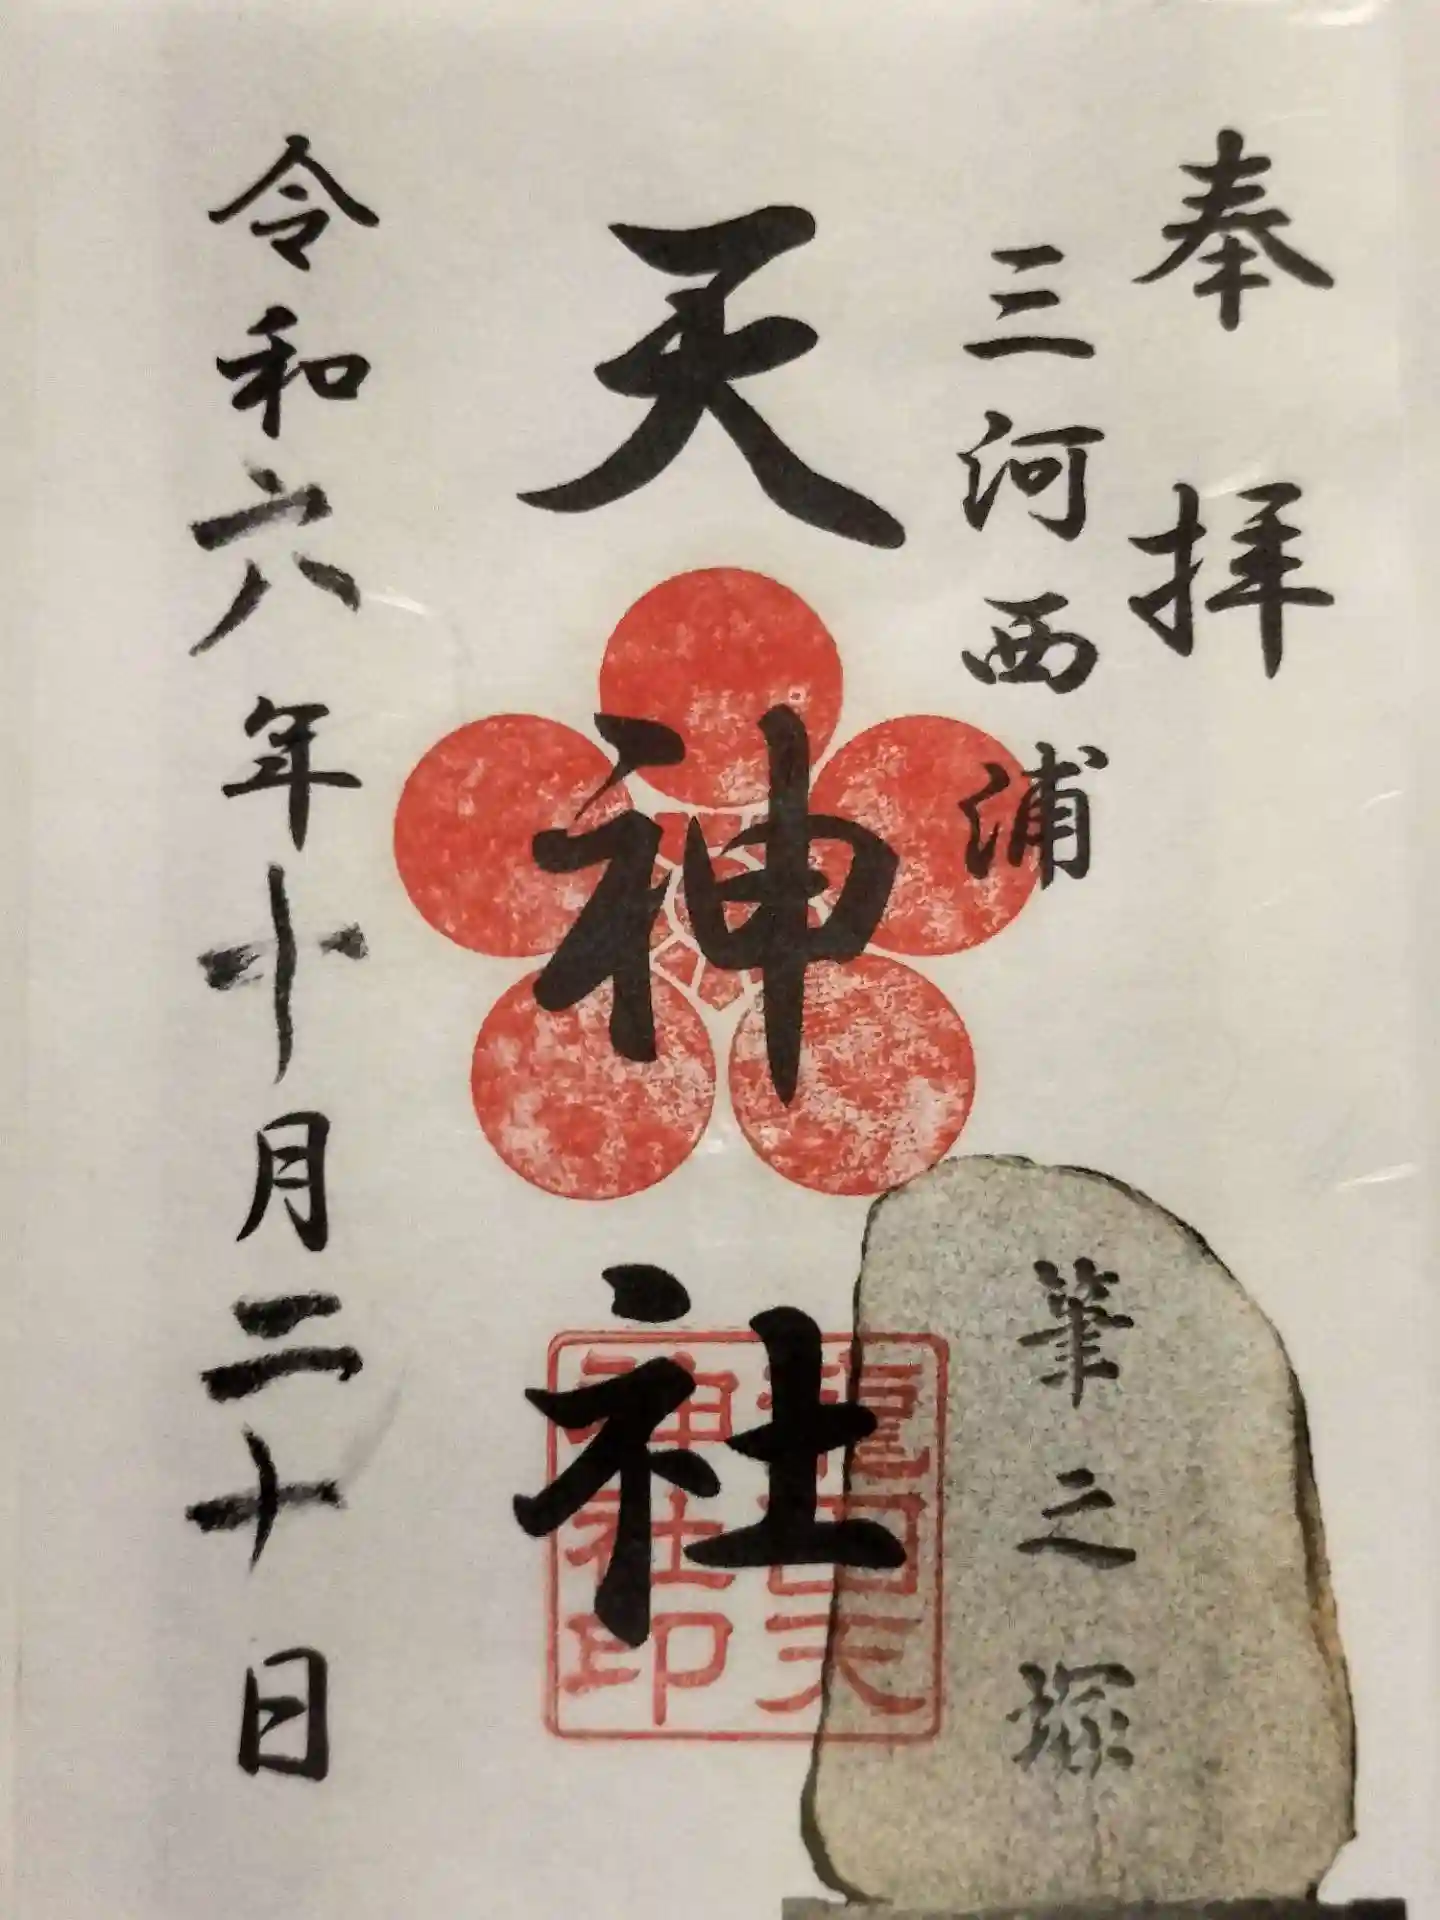 奉拝
三河西浦
天神社
龍田天
神社印
筆之塚
令和六年十月二十日